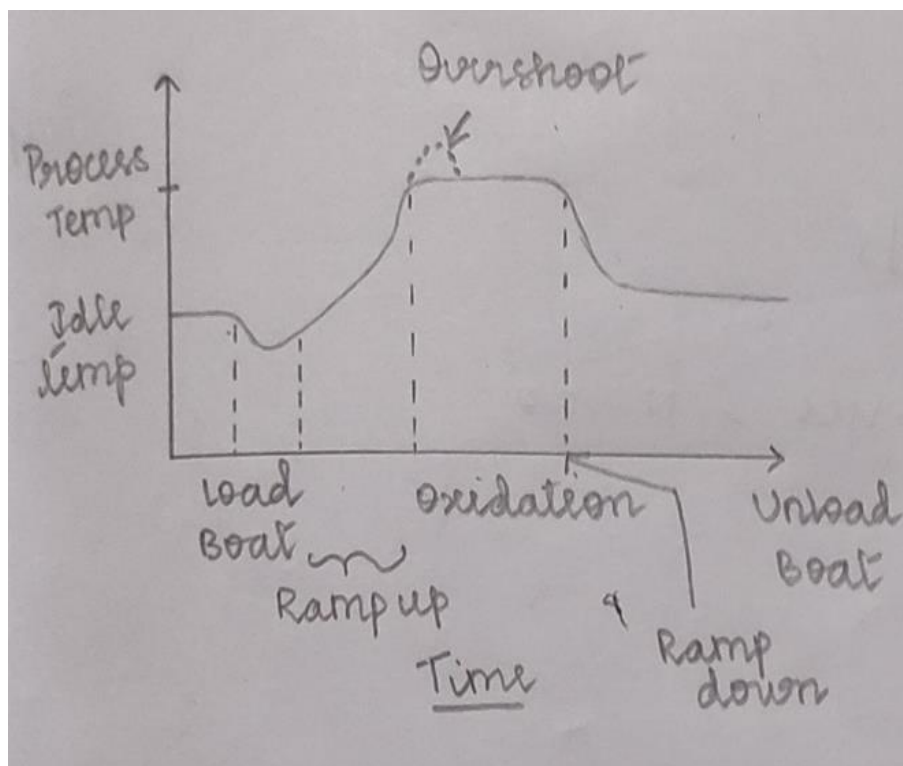 Overshoot
Process
Temp
Idle
temp
Load
Boat
Ramp up
Oxidation
Unload
Boat
Ramp
down
Time